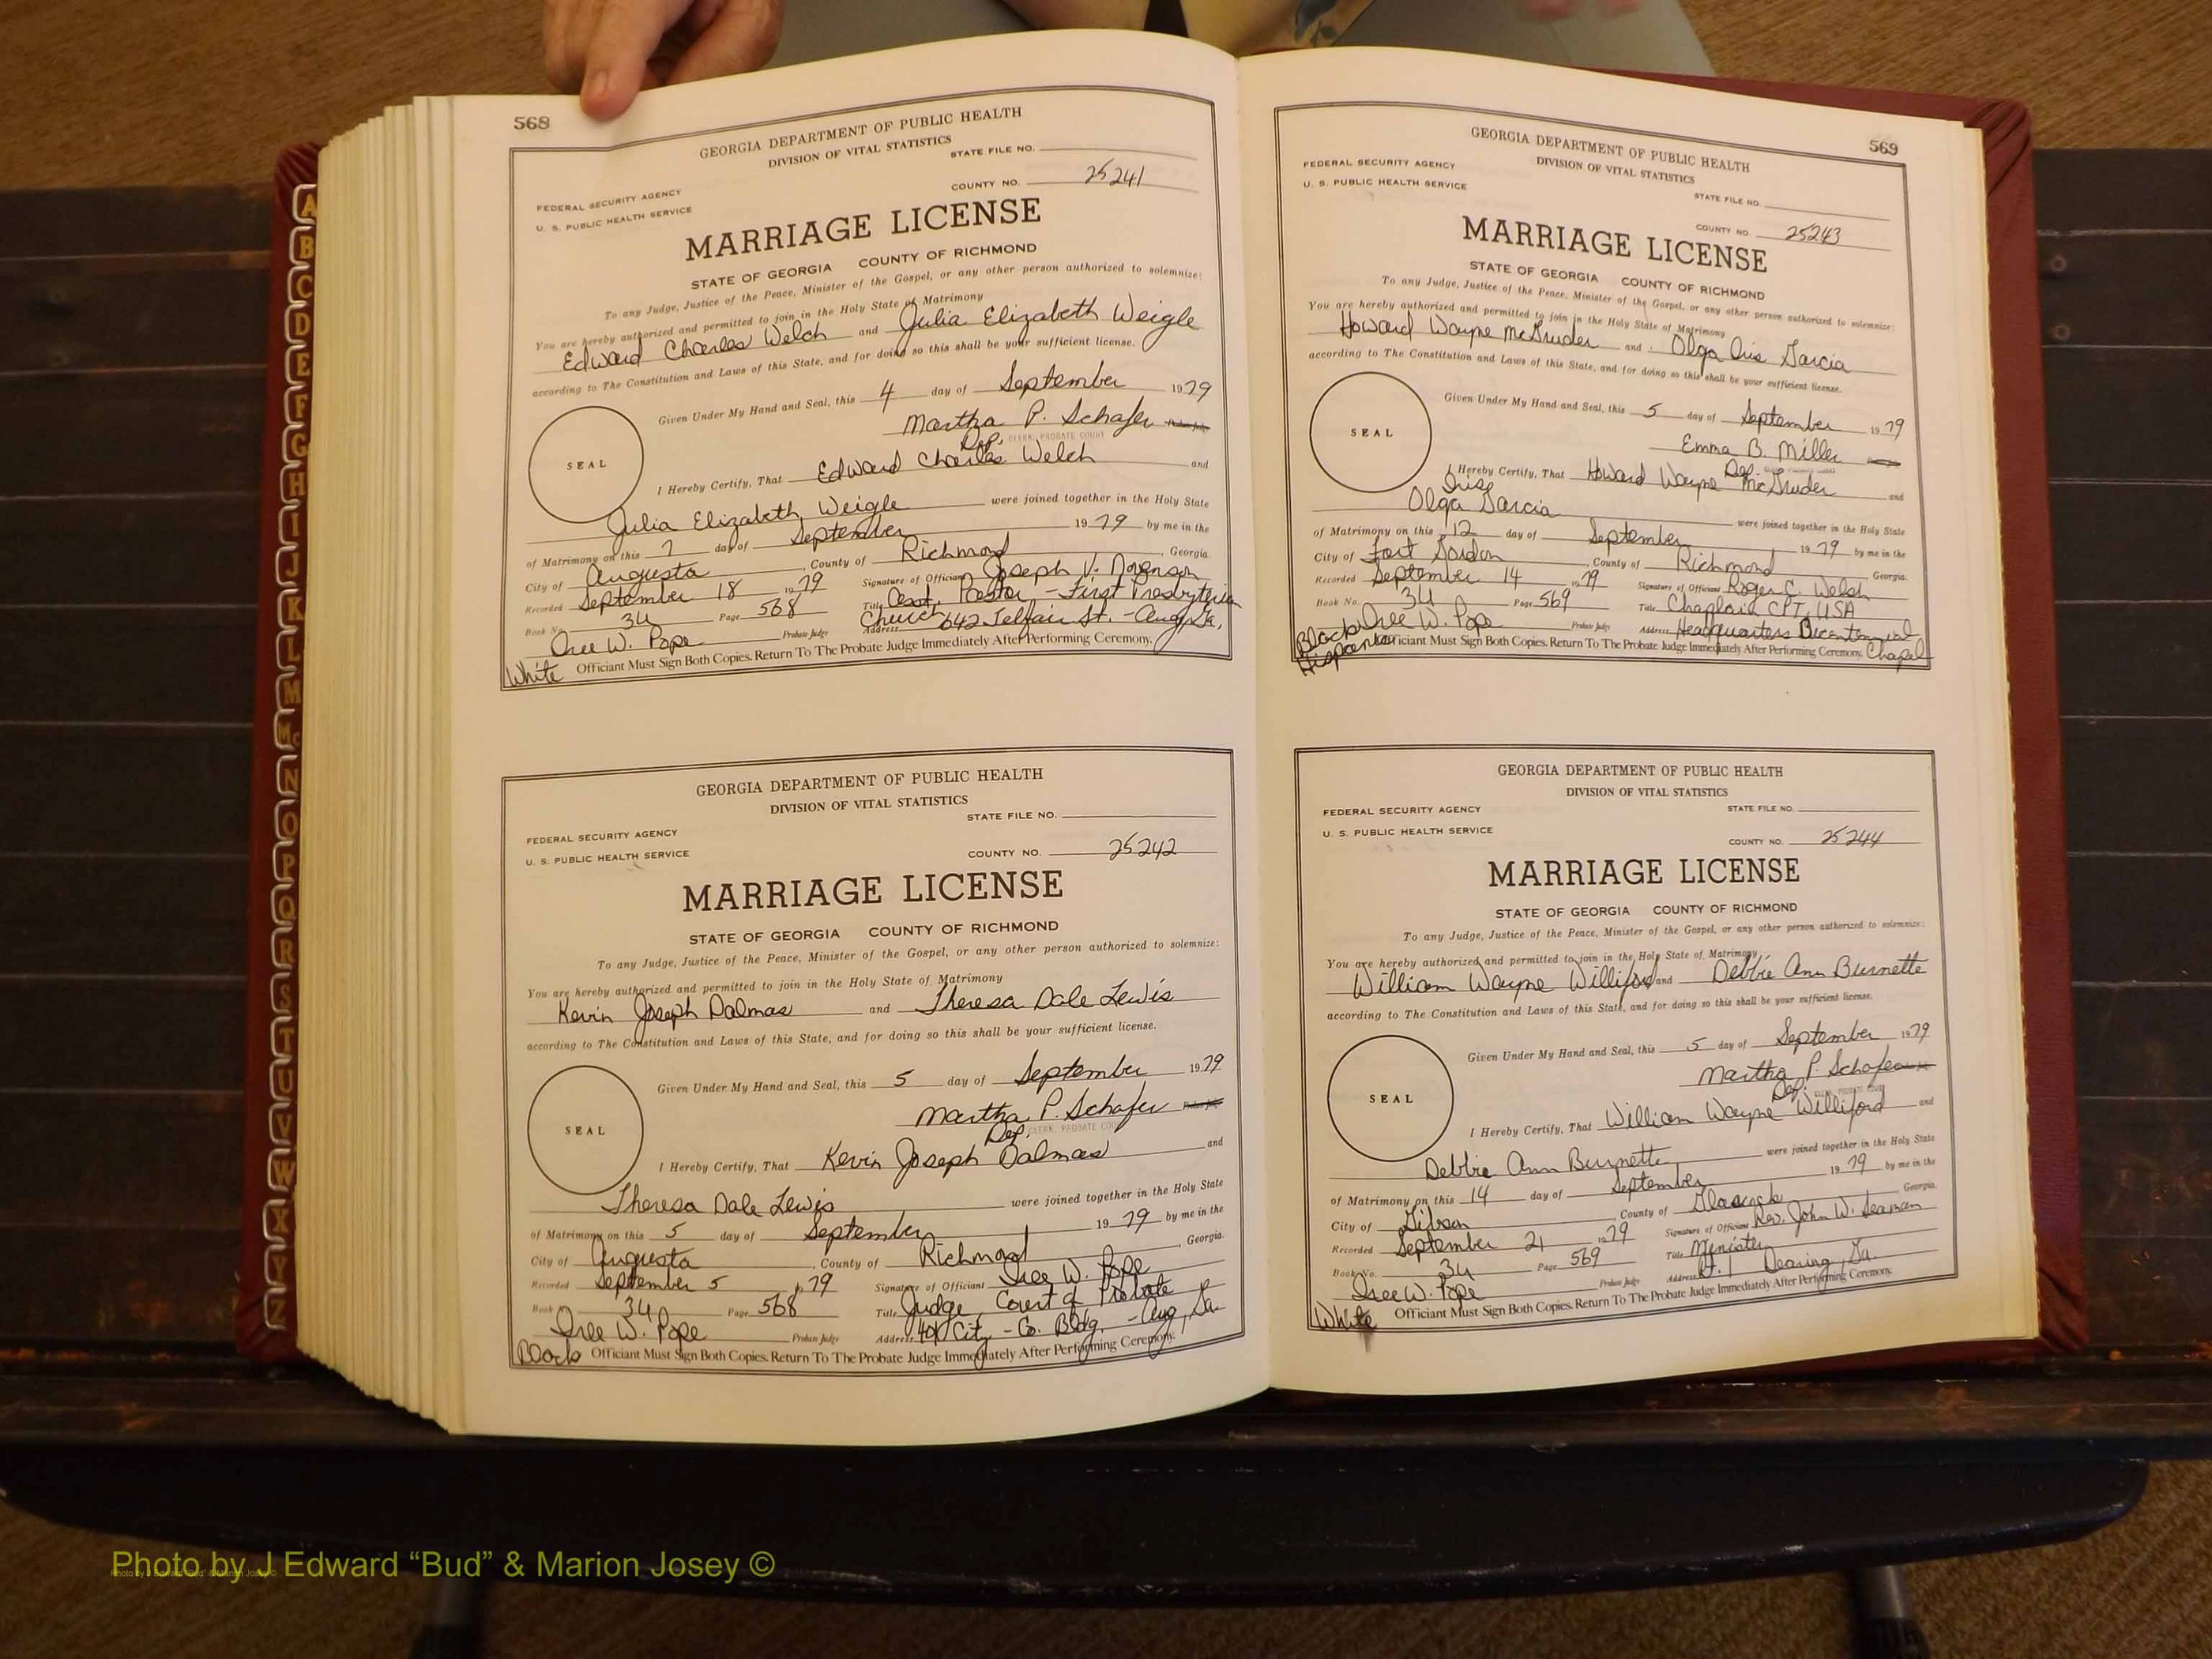 568
GEORGIA DEPARTMENT OF PUBLIC HEALTH
DIVISION OF VITAL STATISTICS
STATE FILE NO.
FEDERAL SECURITY AGENCY
U. S. PUBLIC HEALTH SERVICE
COUNTY NO. 25241
MARRIAGE LICENSE
STATE OF GEORGIA COUNTY OF RICHMOND
To any Judge, Justice of the Peace, Minister of the Gospel, or any other person authorized to solemnize:
You are hereby authorized and permitted to join in the Holy State of Matrimony
Edward Charles Welch and Julia Elizabeth Weigle
according to The Constitution and Laws of this State, and for doing so this shall be your sufficient license.
Given Under My Hand and Seal, this 4 day of September 1979
Martha P. Schafer Probate Judge
Dep. CLERK, PROBATE COURT
SEAL
I Hereby Certify, That Edward Charles Welch and
Julia Elizabeth Weigle were joined together in the Holy State
of Matrimony on this 7 day of September 1979 by me in the
City of Augusta, County of Richmond, Georgia.
Recorded September 18 1979 Signature of Officiant Joseph V.
Book No. 34 Page 568 Title Asst. Pastor - First Presbyterian
Church
Iree W. Pope Probate Judge Address 642 Telfair St. - Aug, Ga.
White Officiant Must Sign Both Copies. Return To The Probate Judge Immediately After Performing Ceremony.
GEORGIA DEPARTMENT OF PUBLIC HEALTH
DIVISION OF VITAL STATISTICS
STATE FILE NO.
FEDERAL SECURITY AGENCY
U. S. PUBLIC HEALTH SERVICE
COUNTY NO. 25242
MARRIAGE LICENSE
STATE OF GEORGIA COUNTY OF RICHMOND
To any Judge, Justice of the Peace, Minister of the Gospel, or any other person authorized to solemnize:
You are hereby authorized and permitted to join in the Holy State of Matrimony
Kevin Joseph Dalmas and Theresa Dale Lewis
according to The Constitution and Laws of this State, and for doing so this shall be your sufficient license.
Given Under My Hand and Seal, this 5 day of September 1979
Martha P. Schafer Probate Judge
Dep. CLERK, PROBATE COURT
SEAL
I Hereby Certify, That Kevin Joseph Dalmas and
Theresa Dale Lewis were joined together in the Holy State
of Matrimony on this 5 day of September 1979 by me in the
City of Augusta, County of Richmond, Georgia.
Recorded September 5 1979 Signature of Officiant Iree W. Pope
Book 34 Page 568 Title Judge, Court of Probate
Iree W. Pope Probate Judge Address 401 City - Co. Bldg. - Aug, Ga
Black Officiant Must Sign Both Copies. Return To The Probate Judge Immediately After Performing Ceremony.
569
GEORGIA DEPARTMENT OF PUBLIC HEALTH
DIVISION OF VITAL STATISTICS
FEDERAL SECURITY AGENCY
U. S. PUBLIC HEALTH SERVICE
STATE FILE NO.
COUNTY NO. 25243
MARRIAGE LICENSE
STATE OF GEORGIA COUNTY OF RICHMOND
To any Judge, Justice of the Peace, Minister of the Gospel, or any other person authorized to solemnize:
You are hereby authorized and permitted to join in the Holy State of Matrimony
Howard Wayne McGruder and Olga Iris Garcia
according to The Constitution and Laws of this State, and for doing so this shall be your sufficient license.
Given Under My Hand and Seal, this 5 day of September 1979
Emma B. Miller
Dep.
SEAL
I Hereby Certify, That Howard Wayne McGruder and
Iris
Olga Garcia were joined together in the Holy State
of Matrimony on this 12 day of September 1979 by me in the
City of Fort Gordon, County of Richmond Georgia.
Recorded September 14 1979 Signature of Officiant Roger C. Welsh
Book No. 34 Page 569 Title Chaplain CPT, USA
Iree W. Pope Probate Judge Address Headquarters Bicentennial
Chapel
Black
Hispanic Officiant Must Sign Both Copies. Return To The Probate Judge Immediately After Performing Ceremony.
GEORGIA DEPARTMENT OF PUBLIC HEALTH
DIVISION OF VITAL STATISTICS
FEDERAL SECURITY AGENCY
STATE FILE NO.
U. S. PUBLIC HEALTH SERVICE
COUNTY NO. 25244
MARRIAGE LICENSE
STATE OF GEORGIA COUNTY OF RICHMOND
To any Judge, Justice of the Peace, Minister of the Gospel, or any other person authorized to solemnize:
You are hereby authorized and permitted to join in the Holy State of Matrimony
William Wayne Williford and Debbie Ann Burnette
according to The Constitution and Laws of this State, and for doing so this shall be your sufficient license.
Given Under My Hand and Seal, this 5 day of September 1979
Martha P. Schafer
Dep. CLERK, PROBATE COURT
SEAL
I Hereby Certify, That William Wayne Williford and
Debbie Ann Burnette were joined together in the Holy State
of Matrimony on this 14 day of September 1979 by me in the
City of Gibson, County of Glascock Georgia.
Recorded September 21 1979 Signature of Officiant Rev. John W. Seaman
Book No. 34 Page 569 Title Minister
Iree W. Pope Probate Judge Address Rt. 1 Dearing, Ga.
White Officiant Must Sign Both Copies. Return To The Probate Judge Immediately After Performing Ceremony.
A
B
C
D
E
F
G
H
I
J
K
L
M
Mc
N
O
P
Q
R
S
T
U
V
W
X
Y
Z
Photo by J Edward “Bud” & Marion Josey ©
Photo by J Edward "Bud" & Marion Josey ©